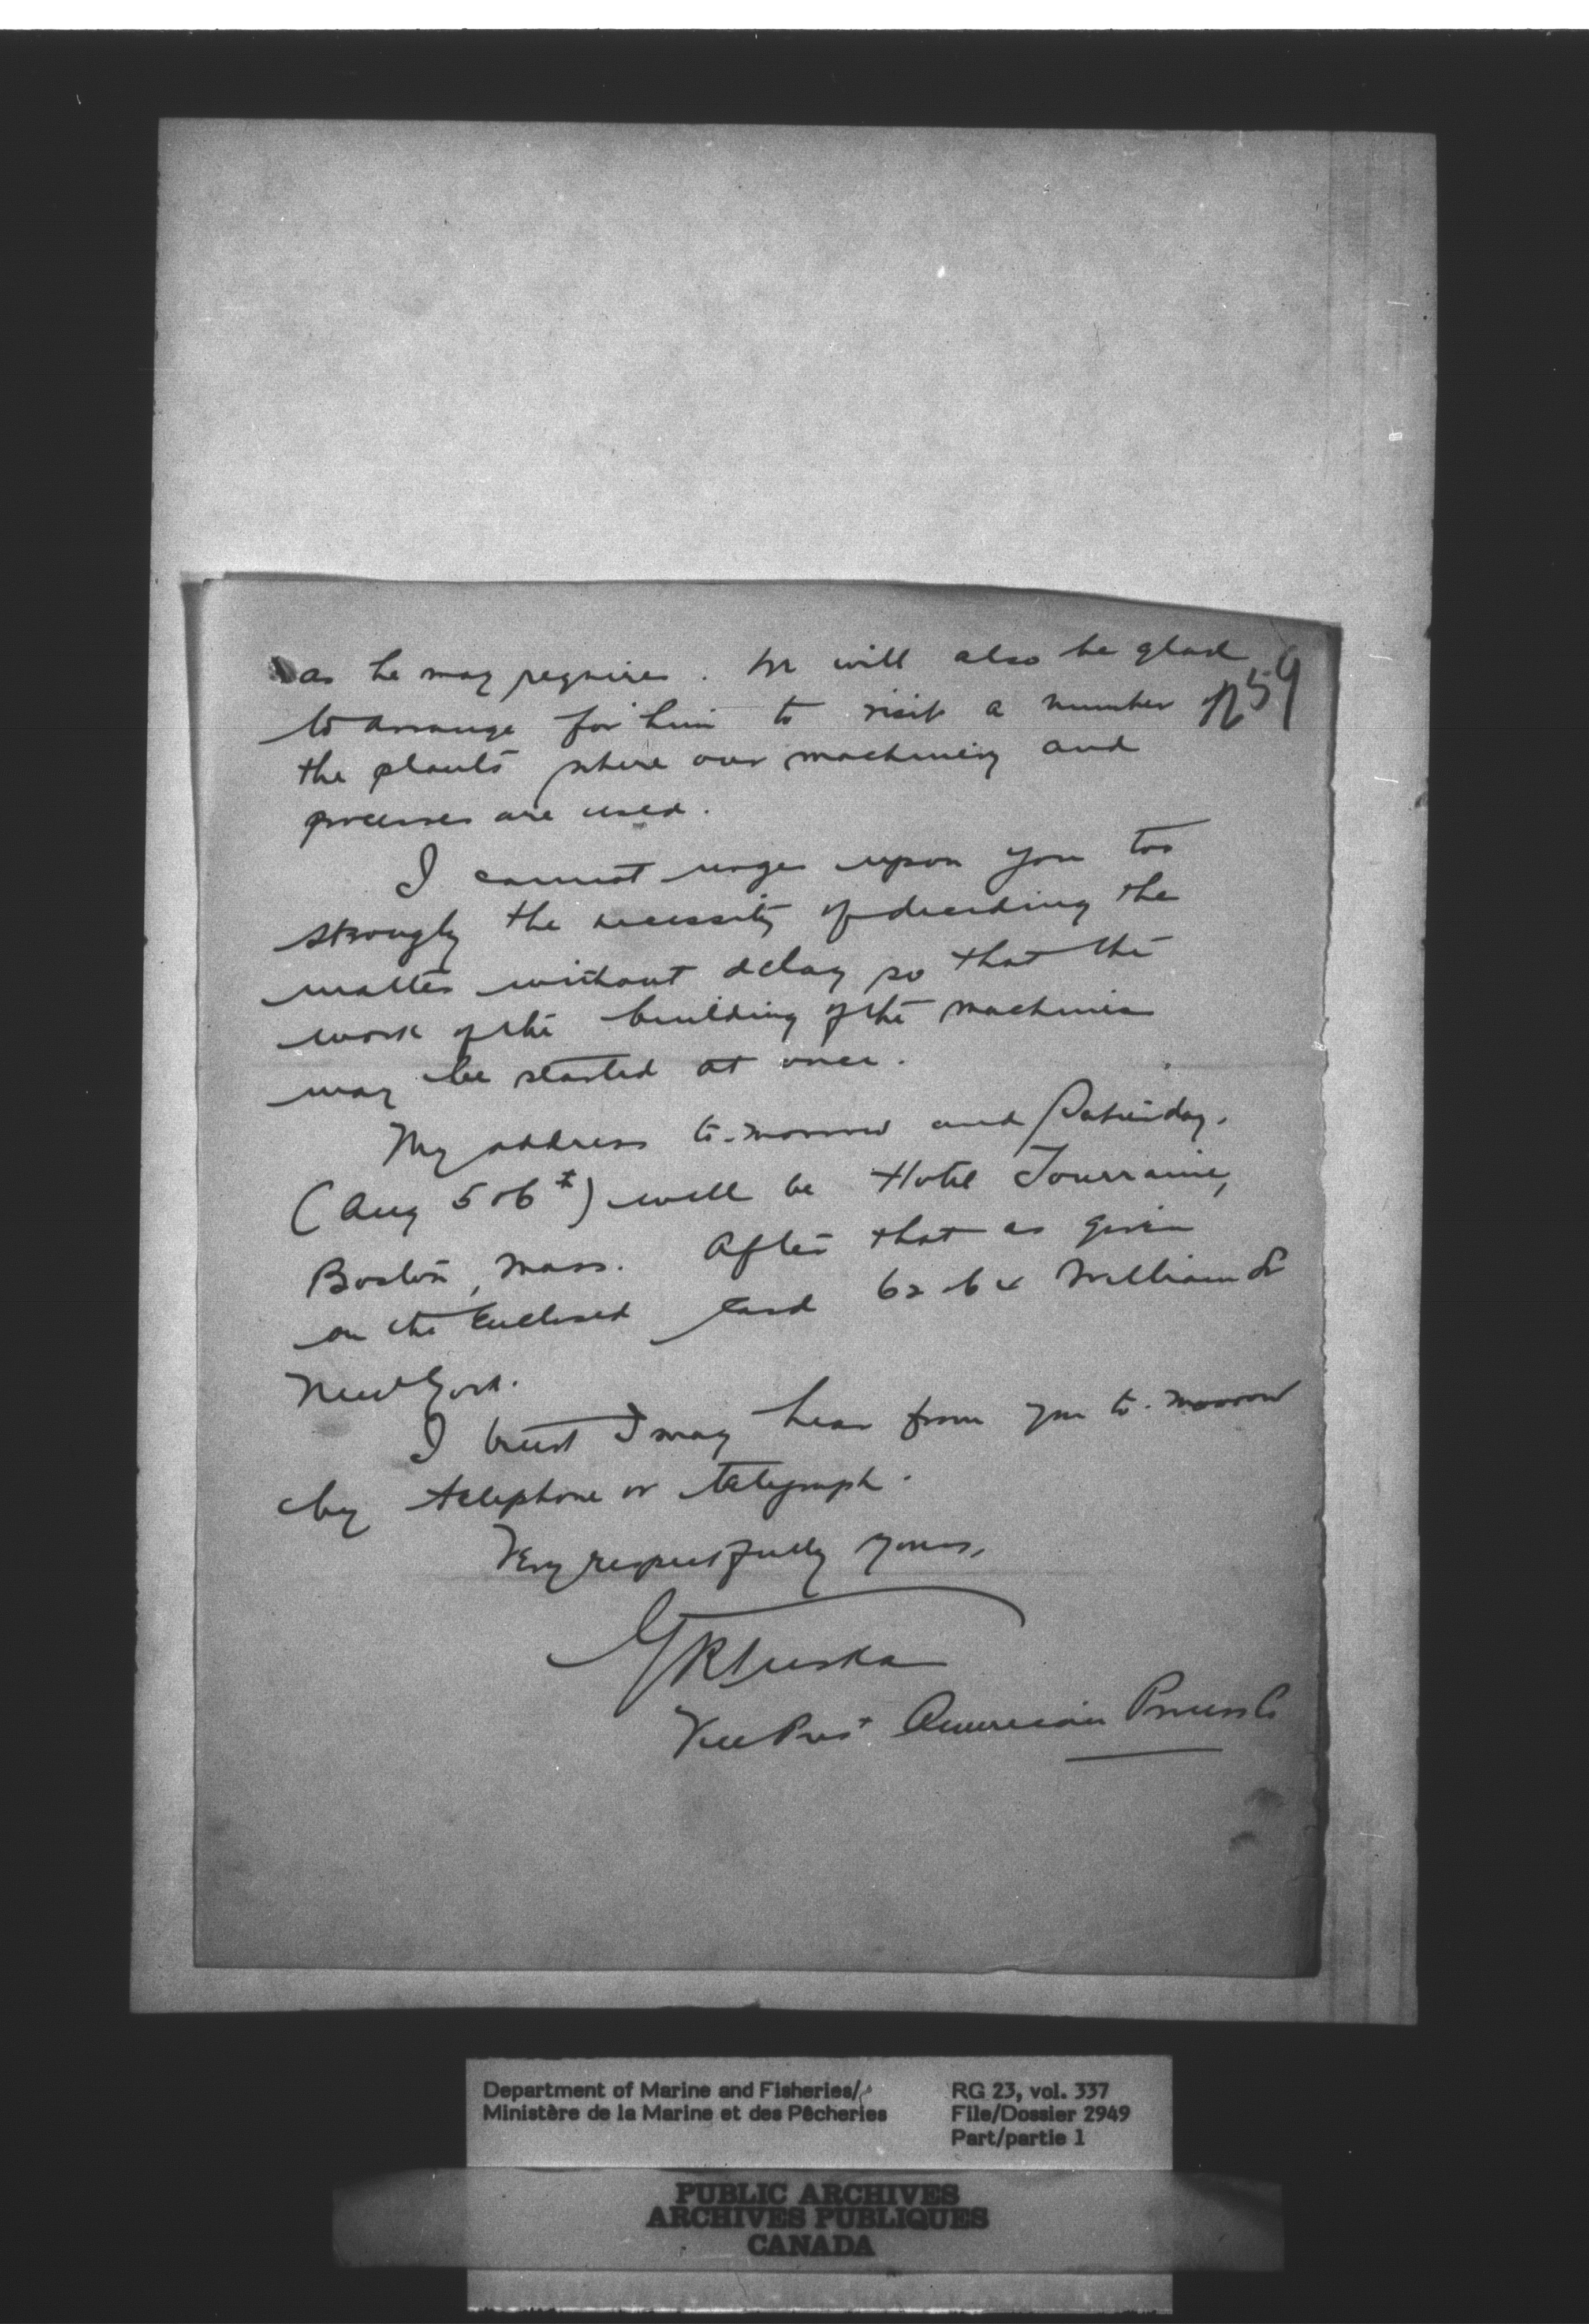 as he may require. We will also be glad
to arrange for him to visit a number of
59
the plants where our machinery and
processes are used.
I cannot urge upon you too
strongly the necessity of deciding the
matter without delay so that the
work of the building of the machines
may be started at once.
My address to-morrow and Saturday,
(Aug 5 & 6th) will be Hotel Tourraine,
Boston, Mass. After that as given
on the Enclosed card 62-64 William St
New York.
I trust I may hear from you to-morrow
by telephone or telegraph.
Very respectfully yours,
GRTuska
Vice Prest American Process Co
Department of Marine and Fisheries/
Ministère de la Marine et des Pêcheries
RG 23, vol. 337
File/Dossier 2949
Part/partie 1
PUBLIC ARCHIVES
ARCHIVES PUBLIQUES
CANADA